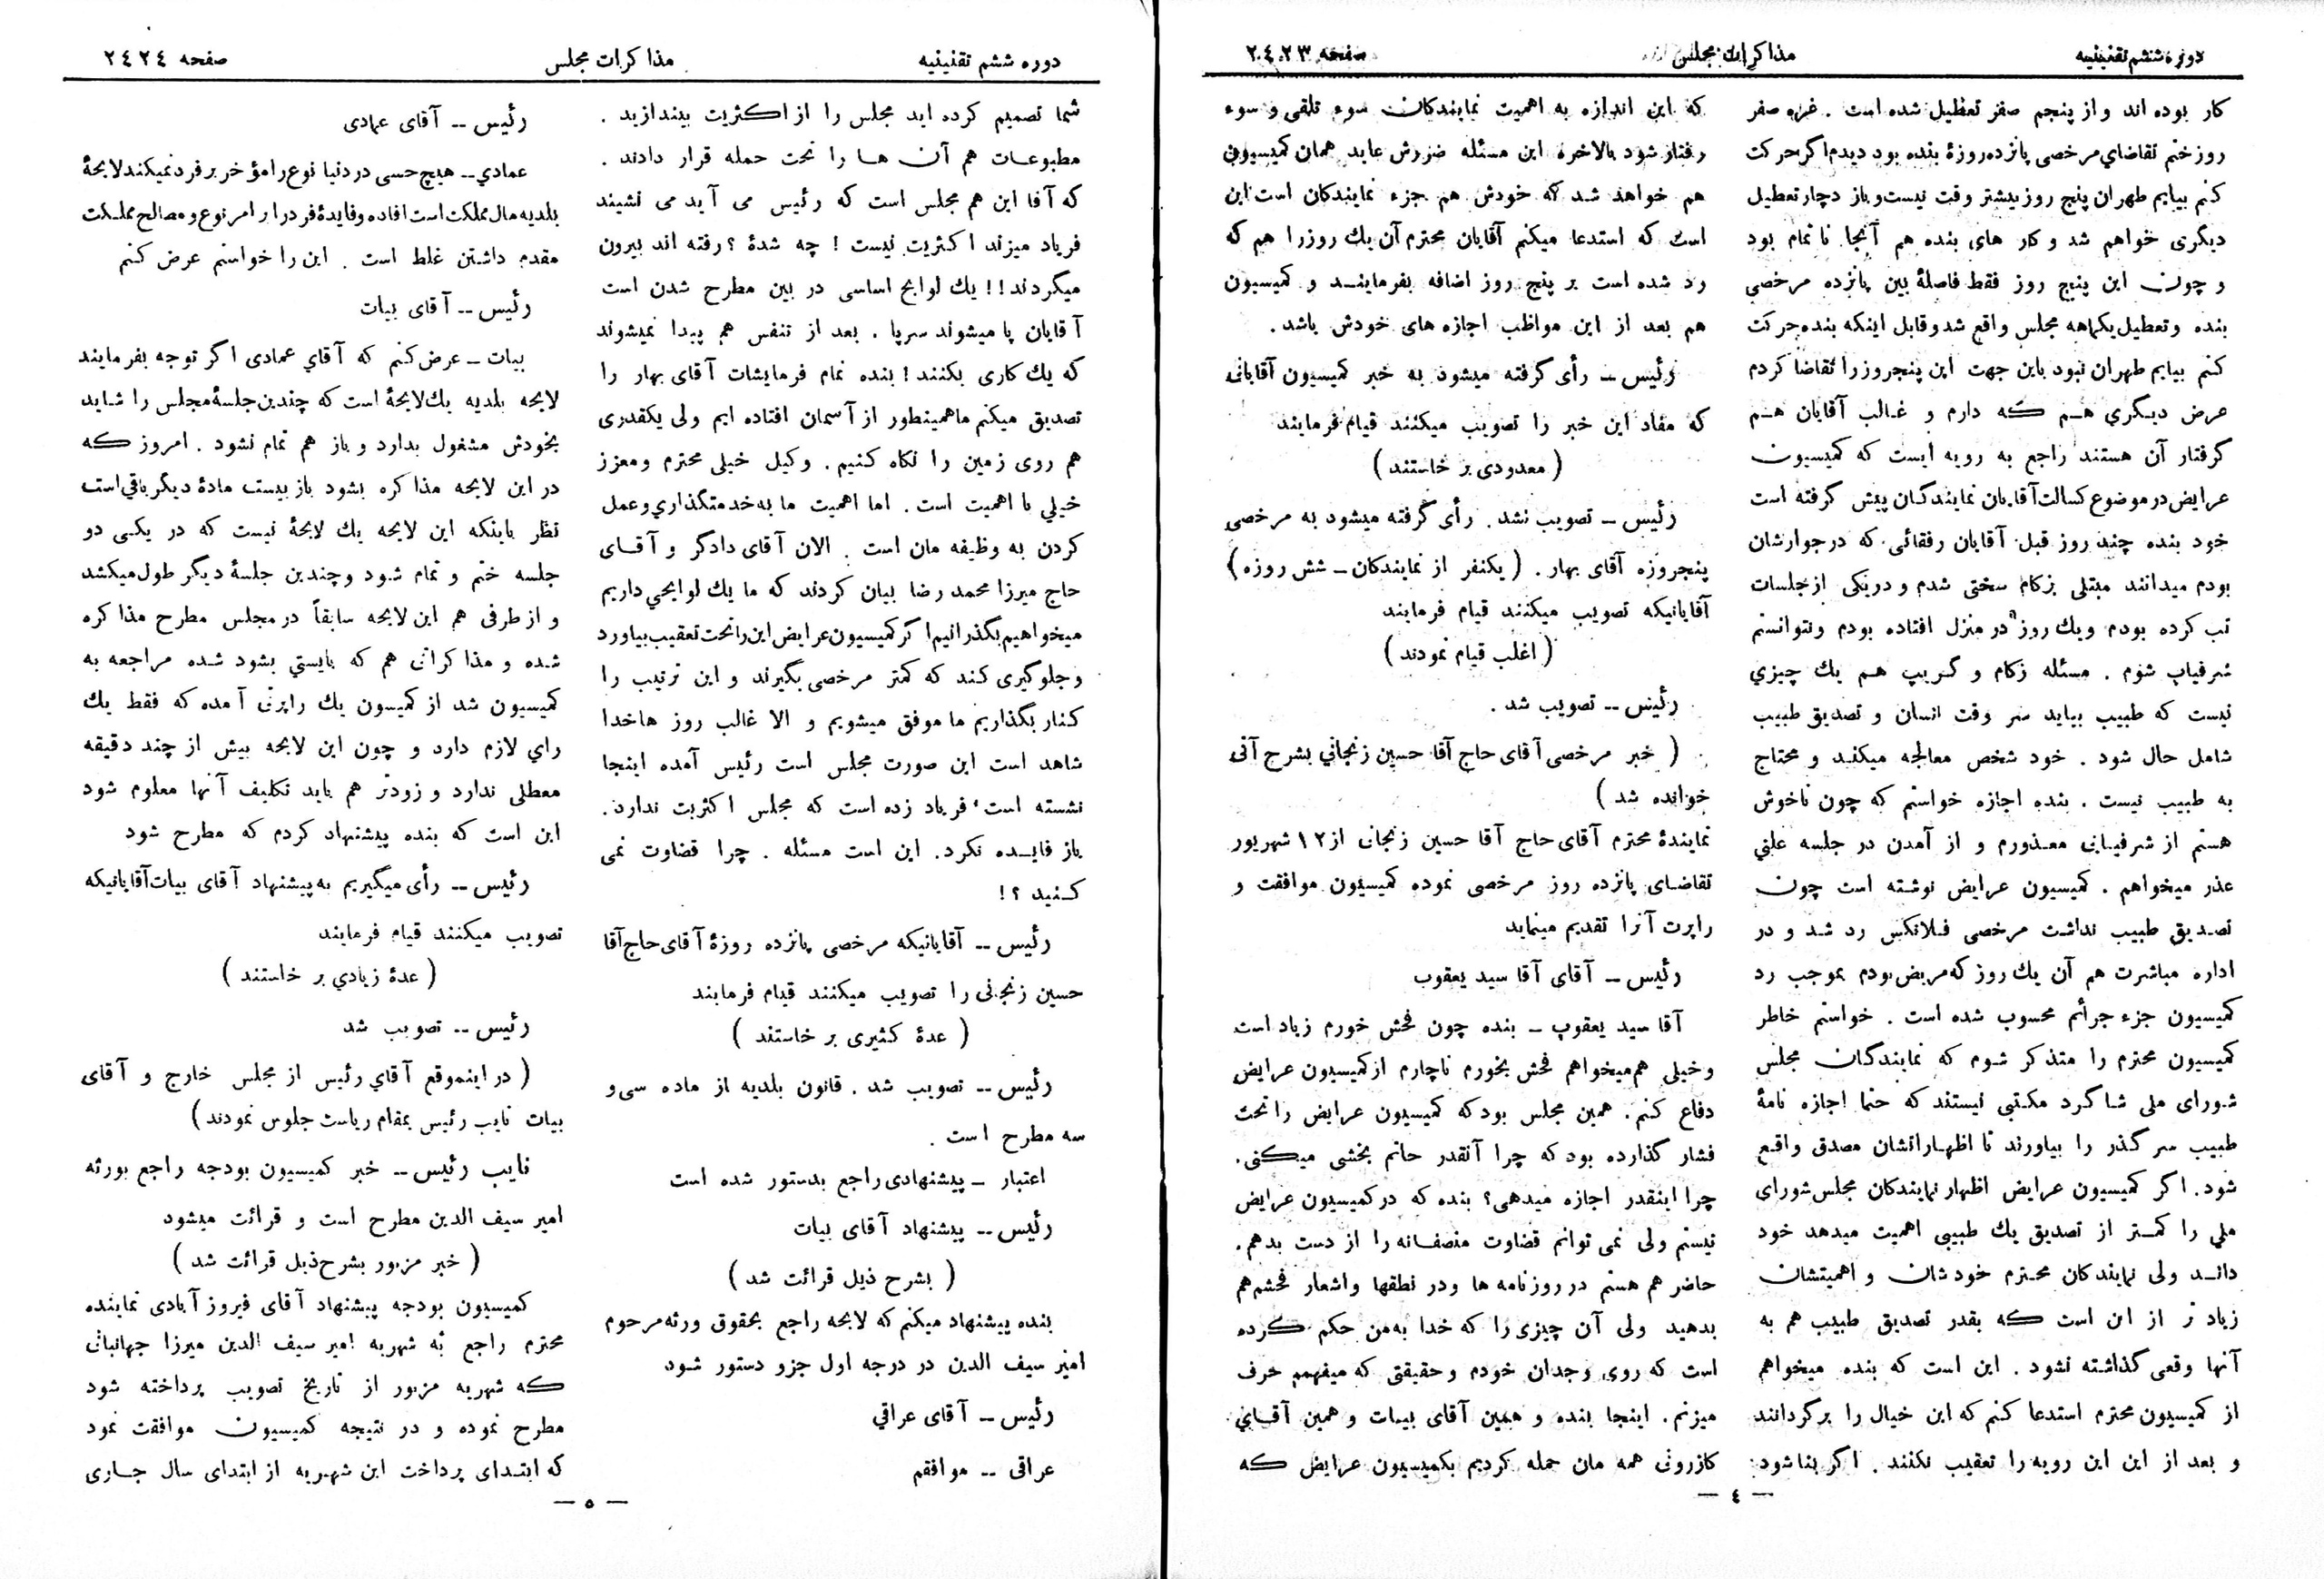 دوره ششم تقنینیه
مذاکرات مجلس
صفحه ۲۴۲۳
کار بوده اند و از پنجم صفر تعطیل شده است . غره صفر
روز ختم تقاضاي مرخصی پانزده روزهٔ بنده بود دیدم اگر حرکت
کنم بیایم طهران پنج روز بیشتر وقت نیست و باز دچار تعطیل
دیگری خواهم شد و کار های بنده هم آنجا نا تمام بود
و چون این پنج روز فقط فاصلهٔ بین پانزده مرخصی
بنده و تعطیل یکماهه مجلس واقع شد و قابل اینکه بنده حرکت
کنم بیایم طهران نبود باین جهت این پنجروز را تقاضا کردم
عرض دیگري هم که دارم و غالب آقایان هم
گرفتار آن هستند راجع به رویه ایست که کمیسیون
عرایض در موضوع کسالت آقایان نمایندگان پیش گرفته است
خود بنده چند روز قبل آقایان رفقائی که در جوارشان
بودم میدانند مبتلی بزکام سختی شدم و در یکی از جلسات
تب کرده بودم و یك روز در منزل افتاده بودم و نتوانستم
شرفیاب شوم . مسئله زکام و گریپ هم یك چیزي
نیست که طبیب بیاید سر وقت انسان و تصدیق طبیب
شامل حال شود . خود شخص معالجه میکند و محتاج
به طبیب نیست . بنده اجازه خواستم که چون ناخوش
هستم از شرفیابی معذورم و از آمدن در جلسه علنی
عذر میخواهم . کمیسیون عرایض نوشته است چون
تصدیق طبیب نداشت مرخصی فلانکس رد شد و در
اداره مباشرت هم آن یك روز که مریض بودم بموجب رد
کمیسیون جزء جرائم محسوب شده است . خواستم خاطر
کمیسیون محترم را متذکر شوم که نمایندگان مجلس
شورای ملی شاگرد مکتبی نیستند که حتما اجازه نامهٔ
طبیب سر گذر را بیاورند تا اظهاراتشان مصدق واقع
شود . اگر کمیسیون عرایض اظهار نمایندکان مجلس شورای
ملي را کمتر از تصدیق یك طبیبی اهمیت میدهد خود
داند ولی نمایندکان محترم خودشان و اهمیتشان
زیاد تر از این است که بقدر تصدیق طبیب هم به
آنها وقعی گذاشته نشود . این است که بنده میخواهم
از کمیسیون محترم استدعا کنم که این خیال را برگردانند
و بعد از این این رویه را تعقیب نکنند . اگر بنا شود
که این اندازه به اهمیت نمایندکان سوء تلقی و سوء
رفتار شود بالاخره این مسئله ضررش عاید همان کمیسیون
هم خواهد شد که خودش هم جزء نمایندکان است این
است که استدعا میکنم آقایان محترم آن یك روز را هم که
رد شده است بر پنج روز اضافه بفرمایند و کمیسیون
هم بعد از این مواظب اجازه های خودش باشد .
رئیس ــ رأی گرفته میشود به خبر کمیسیون آقایانی
که مفاد این خبر را تصویب میکنند قیام فرمایند
( معدودی بر خاستند )
رئیس ــ تصویب نشد . رأی گرفته میشود به مرخصی
پنجروزه آقای بهار . ( یکنفر از نمایندکان ــ شش روزه )
آقایانیکه تصویب میکنند قیام فرمایند
( اغلب قیام نمودند )
رئیس ــ تصویب شد .
( خبر مرخصی آقای حاج آقا حسین زنجاني بشرح آتی
خوانده شد )
نمایندهٔ محترم آقای حاج آقا حسین زنجانی از ۱۲ شهریور
تقاضای پانزده روز مرخصی نموده کمیسیون موافقت و
راپرت آنرا تقدیم مینماید
رئیس ــ آقای آقا سید یعقوب
آقا سید یعقوب ــ بنده چون فحش خورم زیاد است
و خیلی هم میخواهم فحش بخورم ناچارم از کمیسیون عرایض
دفاع کنم . همین مجلس بود که کمیسیون عرایض را تحت
فشار گذارده بود که چرا آنقدر حاتم بخشی میکنی .
چرا اینقدر اجازه میدهی؟ بنده که در کمیسیون عرایض
نیستم ولی نمی توانم قضاوت منصفانه را از دست بدهم .
حاضر هم هستم در روزنامه ها و در نطقها و اشعار فحشم هم
بدهید ولی آن چیزی را که خدا به من حکم کرده
است که روی وجدان خودم و حقیقتی که میفهمم حرف
میزنم . اینجا بنده و همین آقای بیات و همین آقای
کازرونی همه مان حمله کردیم بکمیسیون عرایض که
ــ ٤ ــ
دوره ششم تقنینیه
مذاکرات مجلس
صفحه ۲٤۲٤
شما تصمیم کرده اید مجلس را از اکثریت بیندازید .
مطبوعات هم آن ها را تحت حمله قرار دادند .
که آقا این هم مجلس است که رئیس می آید می نشیند
فریاد میزند اکثریت نیست ! چه شدهٔ ؟ رفته اند بیرون
میگردند!! یك لوایح اساسی در بین مطرح شدن است
آقایان پا میشوند سرپا . بعد از تنفس هم پیدا نمیشوند
که یك کاری بکنند ! بنده تمام فرمایشات آقای بهار را
تصدیق میکنم ما همینطور از آسمان افتاده ایم ولی یکقدری
هم روی زمین را نکاه کنیم . وکیل خیلی محترم و معزز
خیلي با اهمیت است . اما اهمیت ما به خدمتگذاري و عمل
کردن به وظیفه مان است . الان آقای دادگر و آقای
حاج میرزا محمد رضا بیان کردند که ما یك لوایحي داریم
میخواهیم بگذرانیم اگر کمیسیون عرایض این را تحت تعقیب بیاورد
و جلوگیری کند که کمتر مرخصی بگیرند و این ترتیب را
کنار بگذاریم ما موفق میشویم و الا غالب روز ها خدا
شاهد است این صورت مجلس است رئیس آمده اینجا
نشسته است، فریاد زده است که مجلس اکثریت ندارد .
باز فایده نکرد . این است مسئله . چرا قضاوت نمی
کنید ؟ !
رئیس ــ آقایانیکه مرخصی پانزده روزهٔ آقای حاج آقا
حسین زنجانی را تصویب میکنند قیام فرمایند
( عدهٔ کثیری بر خاستند )
رئیس ــ تصویب شد . قانون بلدیه از ماده سی و
سه مطرح است .
اعتبار ــ پیشنهادی راجع بدستور شده است
رئیس ــ پیشنهاد آقای بیات
( بشرح ذیل قرائت شد )
بنده پیشنهاد میکنم که لایحه راجع بحقوق ورثه مرحوم
امیر سیف الدین در درجه اول جزو دستور شود
رئیس ــ آقای عراقي
عراقی ــ موافقم
رئیس ــ آقای عمادی
عمادي ــ هیچ حسی در دنیا نوع را مؤخر بر فرد نمیکند لایحهٔ
بلدیه مال مملکت است افاده و فایدهٔ فرد را بر امر نوع و مصالح مملکت
مقدم داشتن غلط است . این را خواستم عرض کنم
رئیس ــ آقای بیات
بیات ــ عرض کنم که آقاي عمادی اگر توجه بفرمایند
لایحه بلدیه یك لایحهٔ است که چندین جلسهٔ مجلس را شاید
بخودش مشغول بدارد و باز هم تمام نشود . امروز که
در این لایحه مذاکره بشود باز بیست مادهٔ دیگر باقی است
نظر باینکه این لایحه یك لایحهٔ نیست که در یکی دو
جلسه ختم و تمام شود و چندین جلسهٔ دیگر طول میکشد
و از طرفی هم این لایحه سابقاً در مجلس مطرح مذاکره
شده و مذاکراتی هم که بایستي بشود شده مراجعه به
کمیسیون شد از کمیسون یك راپرتی آمده که فقط یك
راي لازم دارد و چون این لایحه بیش از چند دقیقه
معطلی ندارد و زودتر هم باید تکلیف آنها معلوم شود
این است که بنده پیشنهاد کردم که مطرح شود
رئیس ــ رأی میگیریم به پیشنهاد آقای بیات آقایانیکه
تصویب میکنند قیام فرمایند
( عدهٔ زیادي بر خاستند )
رئیس ــ تصویب شد
( در اینموقع آقاي رئیس از مجلس خارج و آقای
بیات نایب رئیس بمقام ریاست جلوس نمودند )
نایب رئیس ــ خبر کمیسیون بودجه راجع بورثه
امیر سیف الدین مطرح است و قرائت میشود
( خبر مزبور بشرح ذیل قرائت شد )
کمیسیون بودجه پیشنهاد آقای فیروز آبادی نماینده
محترم راجع به شهریه امیر سیف الدین میرزا جهانبانی
که شهریه مزبور از تاریخ تصویب پرداخته شود
مطرح نموده و در نتیجه کمیسیون موافقت نمود
که ابتدای پرداخت این شهریه از ابتدای سال جاری
ــ ٥ ــ